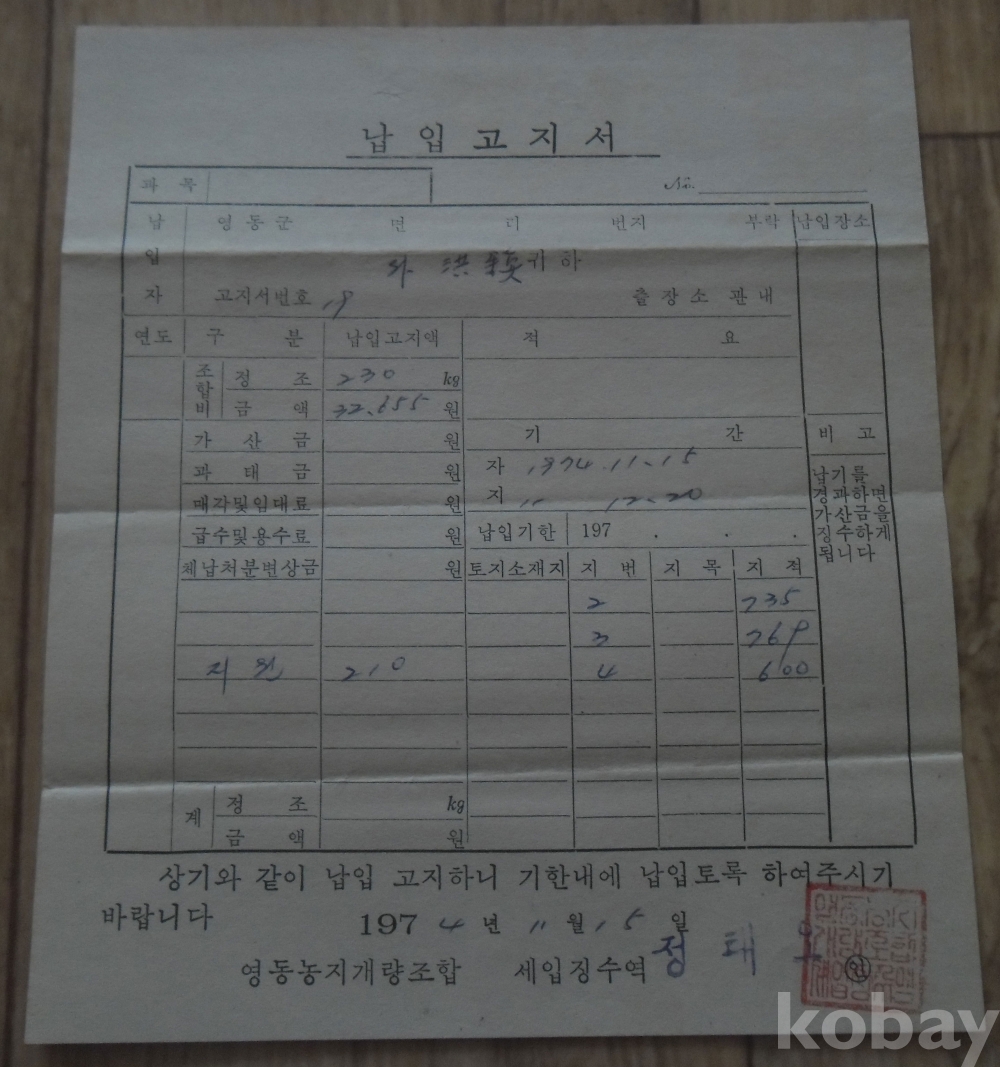 납입고지서
과 목
No.
납입자
영동군 면 리 번지 부락
납입장소
洪 귀하
고지서번호 19
출장소 관내
연도 구 분 납입고지액 적 요
조합비 정 조 230 kg
금 액 32.655 원
가 산 금 원
기 간
비 고
과 태 금 원
자 1974.11.15
매각및임대료 원
지 〃 12.20
납기를
경과하면
가산금을
징수하게
됩니다
급수및용수료 원
납입기한 197 . . .
체납처분변상금 원
토지소재지 지 번 지 목 지 적
2 735
3 769
지원 210 4 600
계 정 조 kg
금 액 원
상기와 같이 납입 고지하니 기한내에 납입토록 하여주시기
바랍니다
1974년 11월 15일
영동농지개량조합 세입징수역 정 태 인
kobay